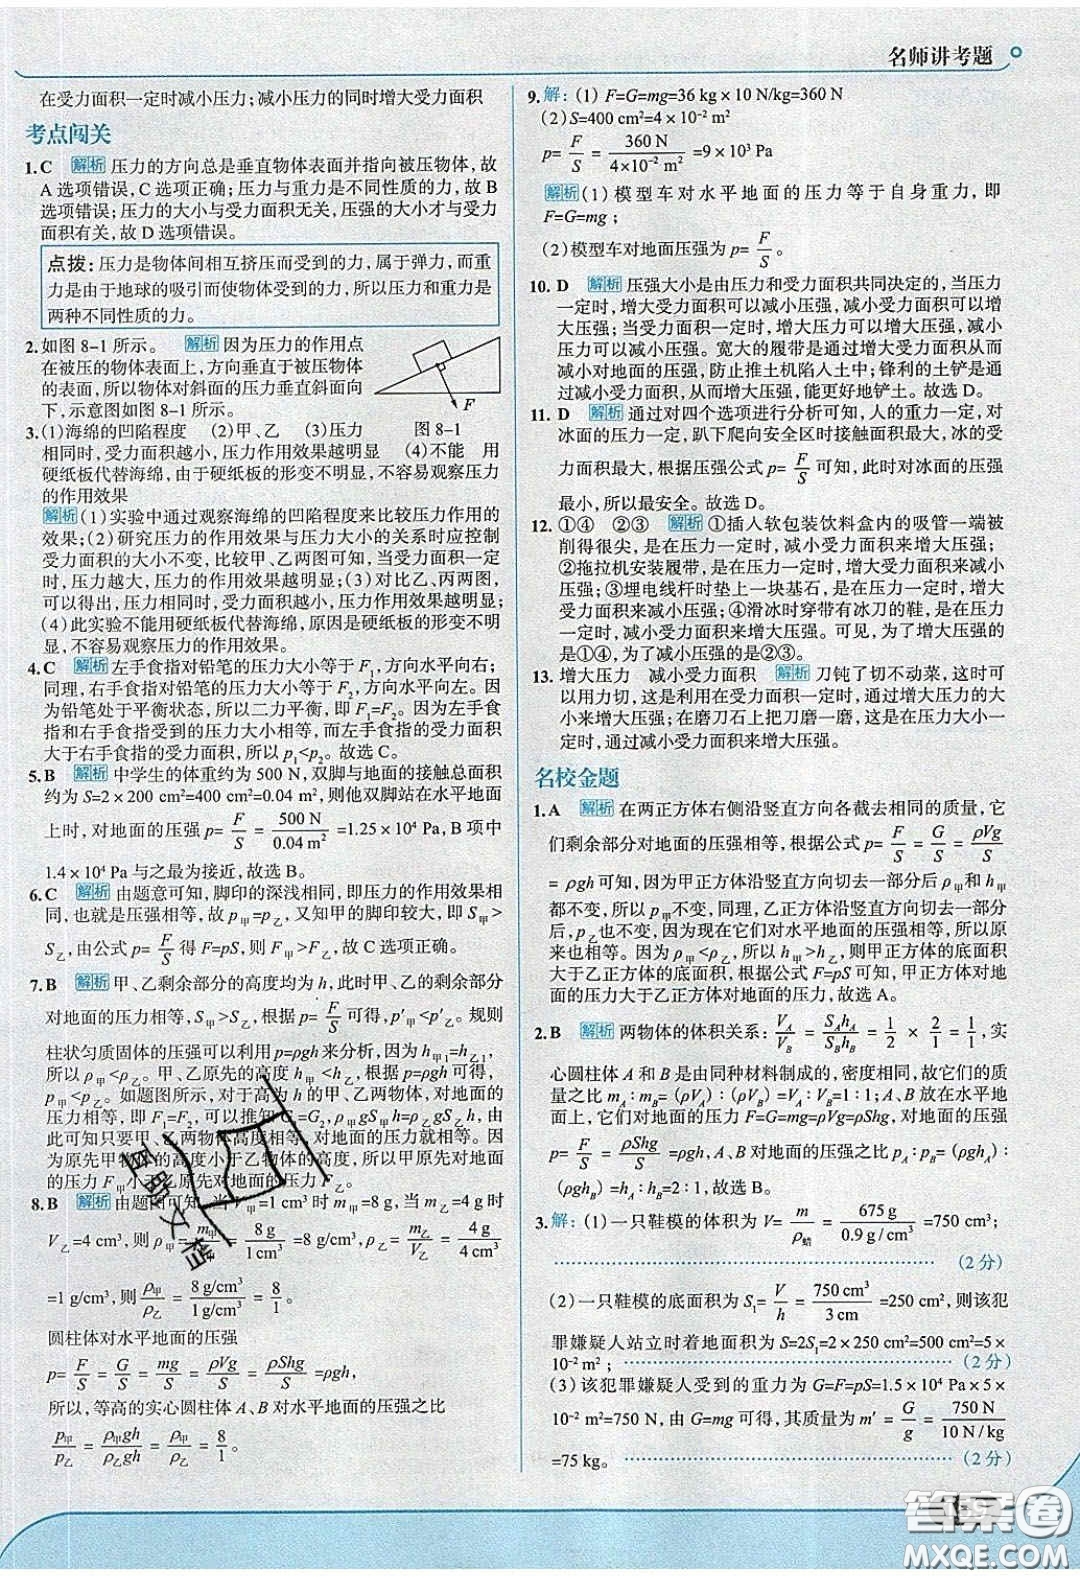 名师讲考题
在受力面积一定时减小压力;减小压力的同时增大受力面积
考点闯关
1.C 解析 压力的方向总是垂直物体表面并指向被压物体,故
A选项错误,C选项正确;压力与重力是不同性质的力,故B
选项错误;压力的大小与受力面积无关,压强的大小才与受力
面积有关,故D选项错误。
点拨:压力是物体间相互挤压而受到的力,属于弹力,而重
力是由于地球的吸引而使物体受到的力,所以压力和重力是
两种不同性质的力。
2.如图8-1所示。 解析 因为压力的作用点
在被压的物体表面上,方向垂直于被压物体
的表面,所以物体对斜面的压力垂直斜面向
下,示意图如图8-1所示。
F
图8-1
3.(1)海绵的凹陷程度 (2)甲、乙 (3)压力
相同时,受力面积越小,压力作用效果越明显 (4)不能 用
硬纸板代替海绵,由于硬纸板的形变不明显,不容易观察压力
的作用效果
解析 (1)实验中通过观察海绵的凹陷程度来比较压力作用的
效果;(2)研究压力的作用效果与压力大小的关系时应控制
受力面积的大小不变,比较甲、乙两图可知,当受力面积一定
时,压力越大,压力的作用效果越明显;(3)对比乙、丙两图,
可以得出,压力相同时,受力面积越小,压力作用效果越明显;
(4)此实验不能用硬纸板代替海绵,原因是硬纸板的形变不明
显,不容易观察压力的作用效果。
4.C 解析 左手食指对铅笔的压力大小等于F₁,方向水平向右;
同理,右手食指对铅笔的压力大小等于F₂,方向水平向左。因
为铅笔处于平衡状态,所以二力平衡,即F₁=F₂。因为左手食
指和右手食指受到的压力大小相等,而左手食指的受力面积
大于右手食指的受力面积,所以p₁<p₂。故选C。
5.B 解析 中学生的体重约为500 N,双脚与地面的接触总面积
约为S=2×200 cm²=400 cm²=0.04 m²,则他双脚站在水平地面
上时,对地面的压强p=F/S=500 N/0.04 m²=1.25×10⁴ Pa,B项中
1.4×10⁴ Pa与之最为接近,故选B。
6.C 解析 由题意可知,脚印的深浅相同,即压力的作用效果相
同,也就是压强相等,故p甲=p乙,又知甲的脚印较大,即S甲>
S乙,由公式p=F/S得F=pS,则F甲>F乙,故C选项正确。
7.B 解析 甲、乙剩余部分的高度均为h,此时甲、乙剩余部分
对地面的压力相等,S甲>S乙,根据p=F/S可得,p′甲<p′乙。规则
柱状匀质固体的压强可以利用p=ρgh来分析,因为h甲1=h乙1,
所以ρ甲<ρ乙。甲、乙原先的高度h甲<h乙,根据p=ρgh可得,
p甲<p乙。如题图所示,对于高为h的甲、乙物体,对地面的
压力相等,即F₁=F₂,可以推知G₁=G₂,ρ甲gS甲h=ρ乙gS乙h,由
此可知只要甲、乙两物体高度相等,对地面的压力就相等。因
为原先甲物体的高度小于乙物体的高度,所以甲原先对地面
的压力F甲小于乙原先对地面的压力F乙。
8.B 解析 由题图可知,当V甲=1 cm³时m甲=8 g,当m乙=4 g时
V乙=4 cm³,则ρ甲=m甲/V甲=8 g/1 cm³=8 g/cm³,ρ乙=m乙/V乙=4 g/4 cm³
=1 g/cm³,则ρ甲/ρ乙=8 g/cm³/1 g/cm³=8/1。
圆柱体对水平地面的压强
p=F/S=G/S=mg/S=ρVg/S=ρShg/S=ρgh,
所以,等高的实心圆柱体A、B对水平地面的压强之比
p甲/p乙=ρ甲gh/ρ乙gh=ρ甲/ρ乙=8/1。
9.解:(1)F=G=mg=36 kg×10 N/kg=360 N
(2)S=400 cm²=4×10⁻² m²
p=F/S=360 N/4×10⁻² m²=9×10³ Pa
解析 (1)模型车对水平地面的压力等于自身重力,即
F=G=mg;
(2)模型车对地面压强为p=F/S。
10. D 解析 压强大小是由压力和受力面积共同决定的,当压力
一定时,增大受力面积可以减小压强,减小受力面积可以增
大压强;当受力面积一定时,增大压力可以增大压强,减小
压力可以减小压强。宽大的履带是通过增大受力面积从而
减小对地面的压强,防止推土机陷入土中;锋利的土铲是通过
减小受力面积,从而增大压强,能更好地铲土。故选D。
11. D 解析 通过对四个选项进行分析可知,人的重力一定,对
冰面的压力一定,趴下爬向安全区时接触面积最大,冰的受
力面积最大,根据压强公式p=F/S可知,此时对冰面的压强
最小,所以最安全。故选D。
12. ①④ ②③ 解析 ①插入软包装饮料盒内的吸管一端被
削得很尖,是在压力一定时,减小受力面积来增大压强;
②拖拉机安装履带,是在压力一定时,增大受力面积来减
小压强;③埋电线杆时垫上一块基石,是在压力一定时,增大
受力面积来减小压强;④滑冰时穿带有冰刀的鞋,是在压力
一定时,减小受力面积来增大压强。可见,为了增大压强
的是①④,为了减小压强的是②③。
13. 增大压力 减小受力面积 解析 刀钝了切不动菜,这时可
以用力切,这是利用在受力面积一定时,通过增大压力的大
小来增大压强;在磨刀石上把刀磨一磨,这是在压力大小一
定时,通过减小受力面积来增大压强。
名校金题
1.A 解析 在两正方体右侧沿竖直方向各截去相同的质量,它
们剩余部分对地面的压强相等,根据公式p=F/S=G/S=ρVg/S
=ρgh可知,因为甲正方体沿竖直方向切去一部分后ρ甲和h甲
都不变,所以p甲不变,同理,乙正方体沿竖直方向切去一部分
后,p乙也不变,因为现在它们对水平地面的压强相等,所以原
来也相等。因为ρ甲<ρ乙,所以h甲>h乙,则甲正方体的底面积
大于乙正方体的底面积,根据公式F=pS可知,甲正方体对地
面的压力大于乙正方体对地面的压力,故选A。
2.B 解析 两物体的体积关系:V_A/V_B=S_Ah_A/S_Bh_B=1/2×2/1=1/1,实
心圆柱体A和B是由同种材料制成的,密度相同,故它们的质
量之比m_A:m_B=(ρV_A):(ρV_B)=V_A:V_B=1:1;A、B放在水平地
面上,它们对地面的压力F=G=mg=ρVg=ρShg,对地面的压强
p=F/S=ρShg/S=ρgh,A、B对地面的压强之比p_A:p_B=(ρgh_A):
(ρgh_B)=h_A:h_B=2:1,故选B。
3.解:(1)一只鞋模的体积为V=m/ρ蜡=675 g/0.9 g/cm³=750 cm³;
(2分)
(2)一只鞋模的底面积为S₁=V/h=750 cm³/3 cm=250 cm²,则该犯
罪嫌疑人站立时着地面积为S=2S₁=2×250 cm²=500 cm²=5×
10⁻² m²; (2分)
(3)该犯罪嫌疑人受到的重力为G=F=pS=1.5×10⁴ Pa×5×
10⁻² m²=750 N,由G=mg可得,其质量为m′=G/g=750 N/10 N/kg
=75 kg。 (2分)
互助文档
答案圈
MXQE.COM